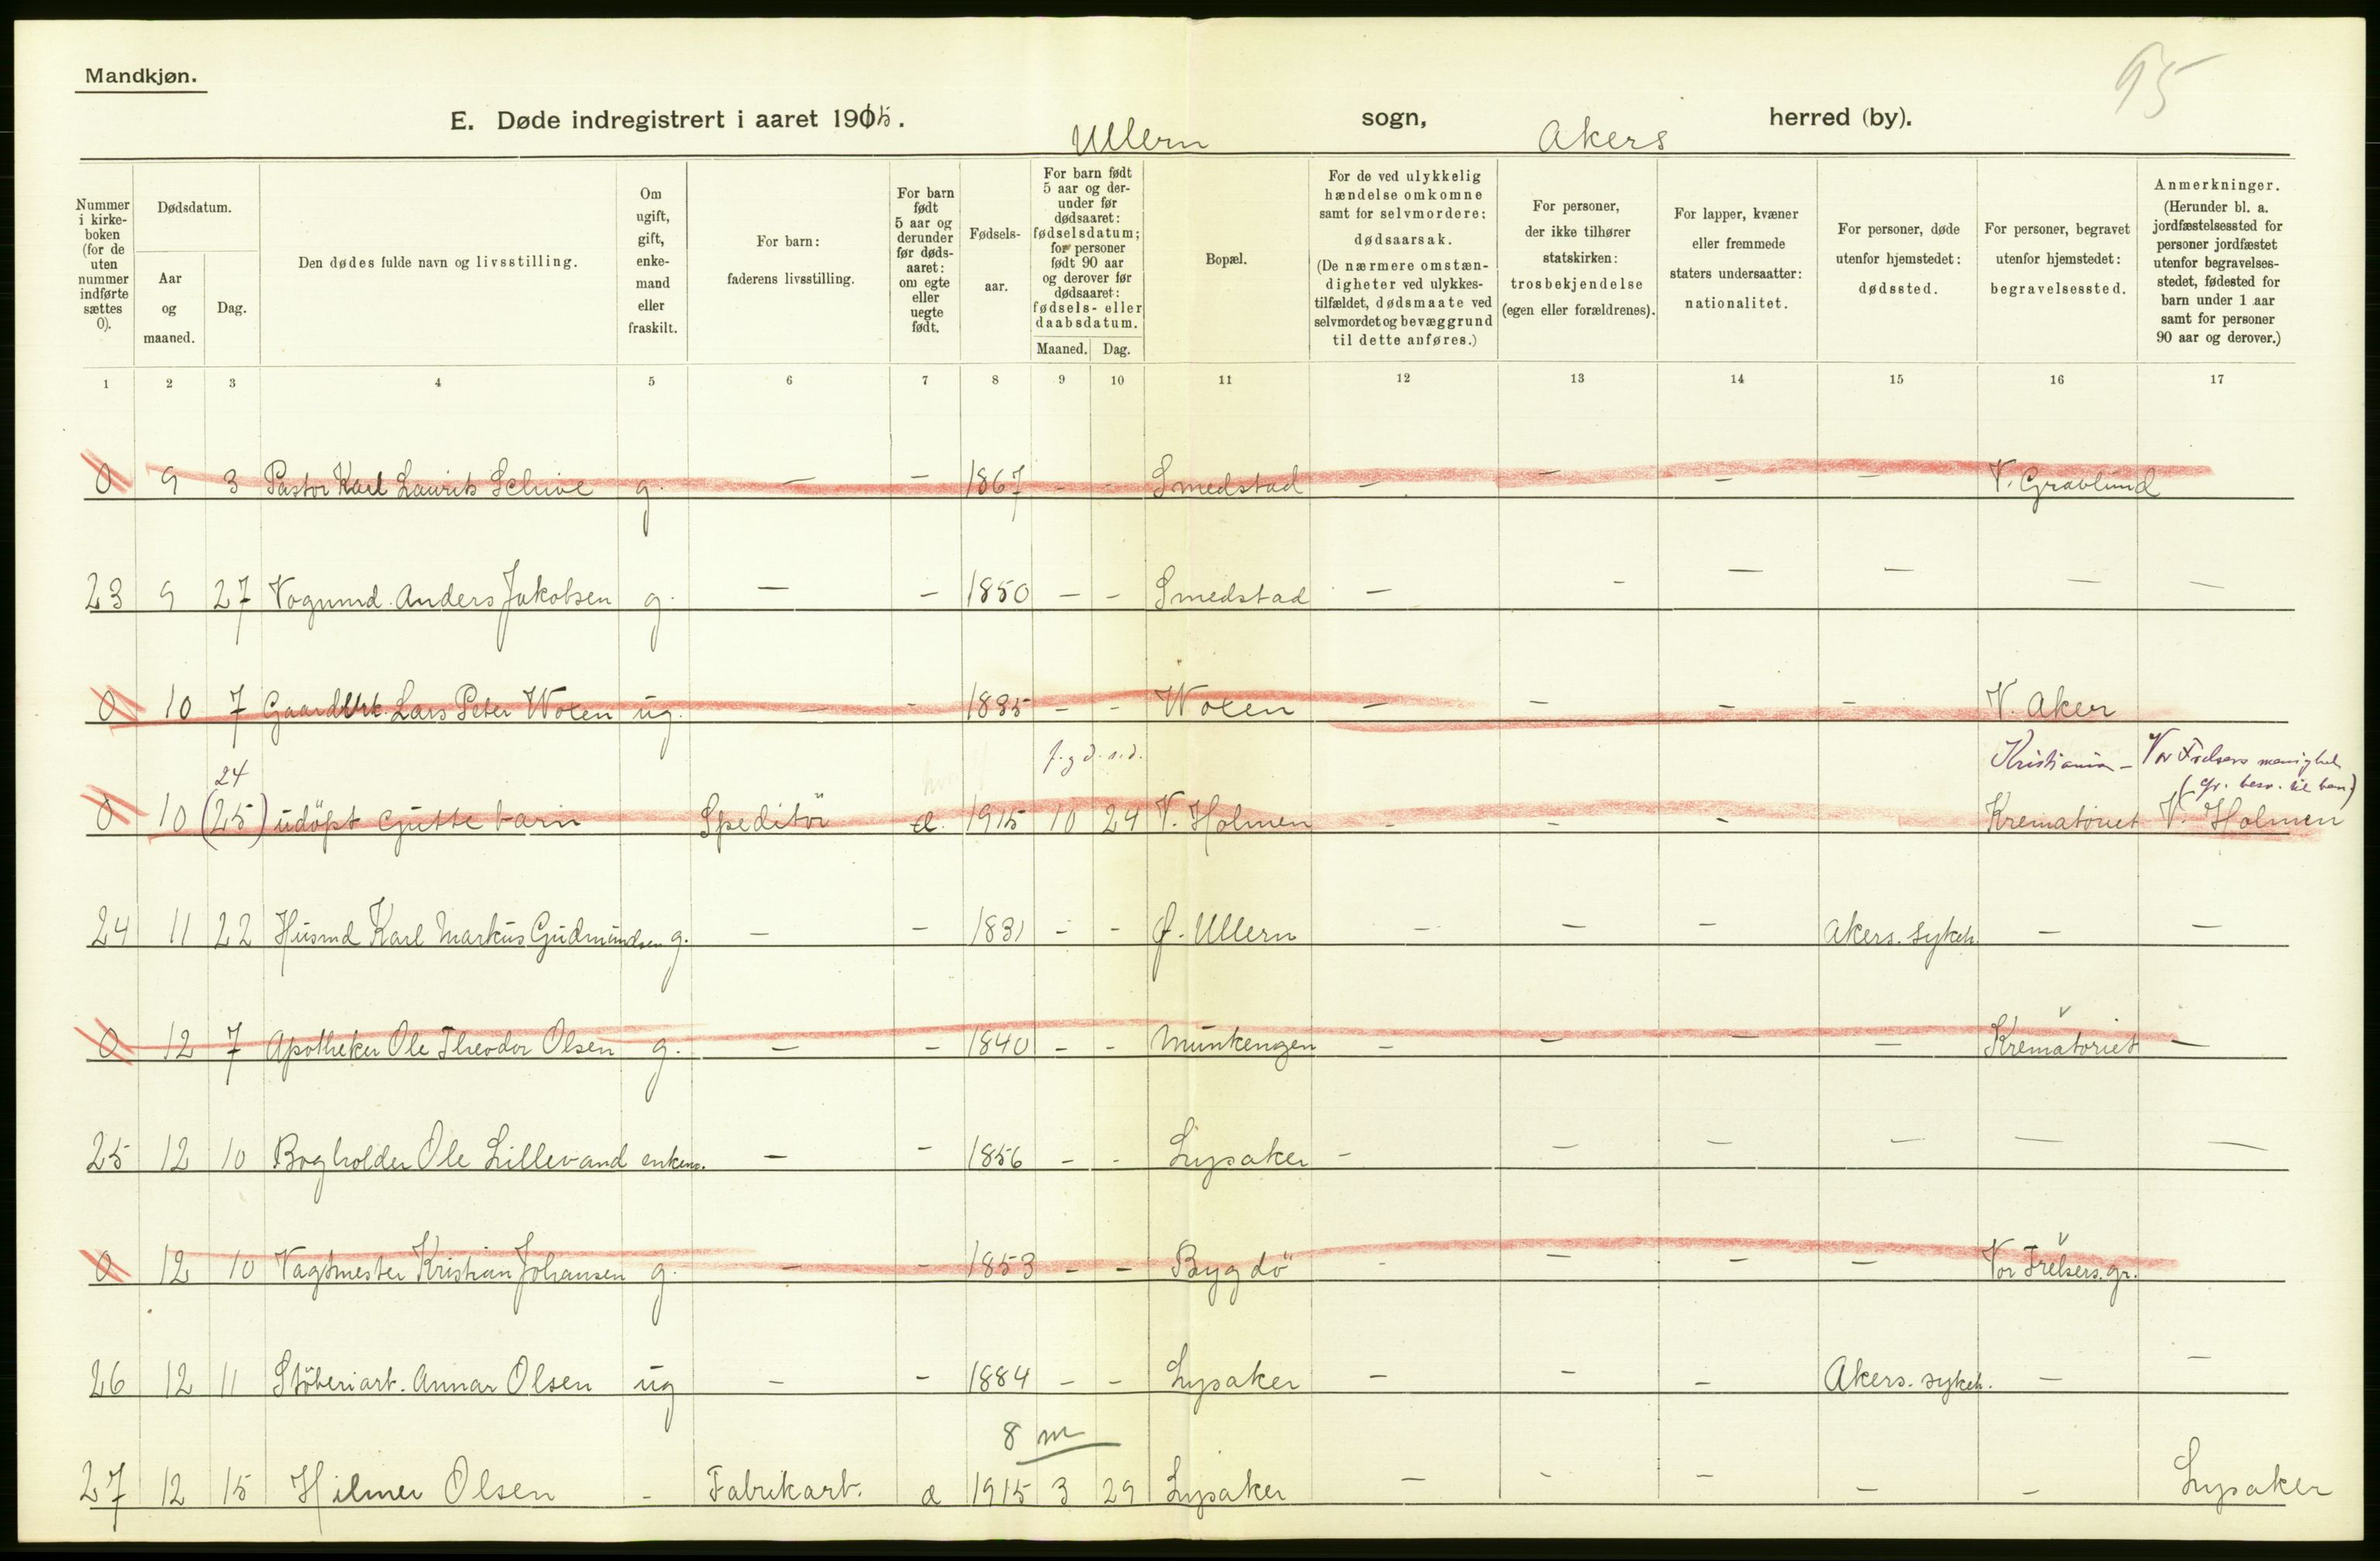 95
Mandkjøn.
E. Døde indregistrert i aaret 1915. Ullern sogn, Akers herred (by).
Nummer i kirke-boken (for de uten nummer indførte sættes 0).
Dødsdatum.
Aar og maaned.
Dag.
Den dødes fulde navn og livsstilling.
Om ugift, gift, enke-mand eller fraskilt.
For barn: faderens livsstilling.
For barn født 5 aar og derunder før døds-aaret: om egte eller uegte født.
Fødsels-aar.
For barn født 5 aar og der-under før dødsaaret: fødselsdatum; for personer født 90 aar og derover før dødsaaret: fødsels- eller daabsdatum.
Maaned. Dag.
Bopæl.
For de ved ulykkelig hændelse omkomne samt for selvmordere: dødsaarsak. (De nærmere omstæn-digheter ved ulykkes-tilfældet, dødsmaate ved selvmordet og bevæggrund til dette anføres.)
For personer, der ikke tilhører statskirken: trosbekjendelse (egen eller forældrenes).
For lapper, kvæner eller fremmede staters undersaatter: nationalitet.
For personer, døde utenfor hjemstedet: dødssted.
For personer, begravet utenfor hjemstedet: begravelsessted.
Anmerkninger. (Herunder bl. a. jordfæstelsessted for personer jordfæstet utenfor begravelses-stedet, fødested for barn under 1 aar samt for personer 90 aar og derover.)
1 2 3 4 5 6 7 8 9 10 11 12 13 14 15 16 17
0 9 3 Pastor Karl Laurits Schive g. — — 1867 - - Smedstad — — — — V. Gravlund
23 9 27 Vognmd. Anders Jakobsen g. — — 1850 — - Smedstad — - — — — —
0 10 7 Gaardbrk. Lars Peter Woxen ug. — - 1835 - - Woxen — — - — V. Aker
24 f. g. d. s. d. Kristiania — Vor Frelsers menighet
(gr. besv. til ham)
0 10 (25) udöpt Guttebarn Speditör æ. 1915 10 24 V. Holmen - — - Krematoriet V. Holmen
24 11 22 Husmd Karl Markus Gudmundsen g. — — 1831 - - Ø. Ullern - — — Akers. sykeh. — —
0 12 7 Apotheker Ole Theodor Olsen g. — — 1840 - - Munkengen — — — — Krematoriet —
25 12 10 Bogholder Ole Lillevand enkem. — - 1856 - - Lysaker - — — — — —
0 12 10 Vagtmester Kristian Johansen g. — - 1853 - - Bygdö - — — — Vor Frelsers. gr.
26 12 11 Stöberiart. Annar Olsen ug — — 1884 — - Lysaker — — — Akers. sykeh. — —
8 m
27 12 15 Hilmer Olsen - Fabrikarb. æ 1915 3 29 Lysaker — - — — — Lysaker